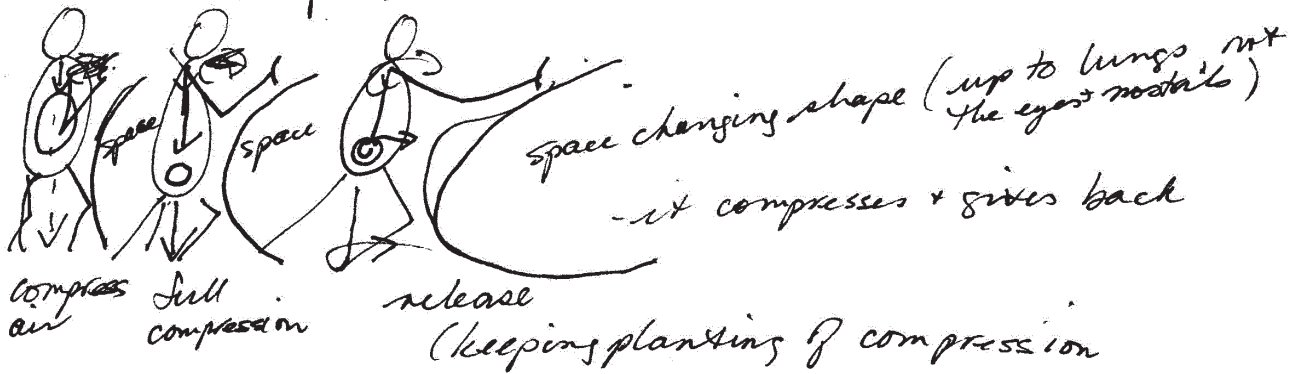 space
space
space changing shape (up to lungs not
the eyes + nostrils)
- it compresses + gives back
compress
air
full
compression
release
(keeping planting of compression